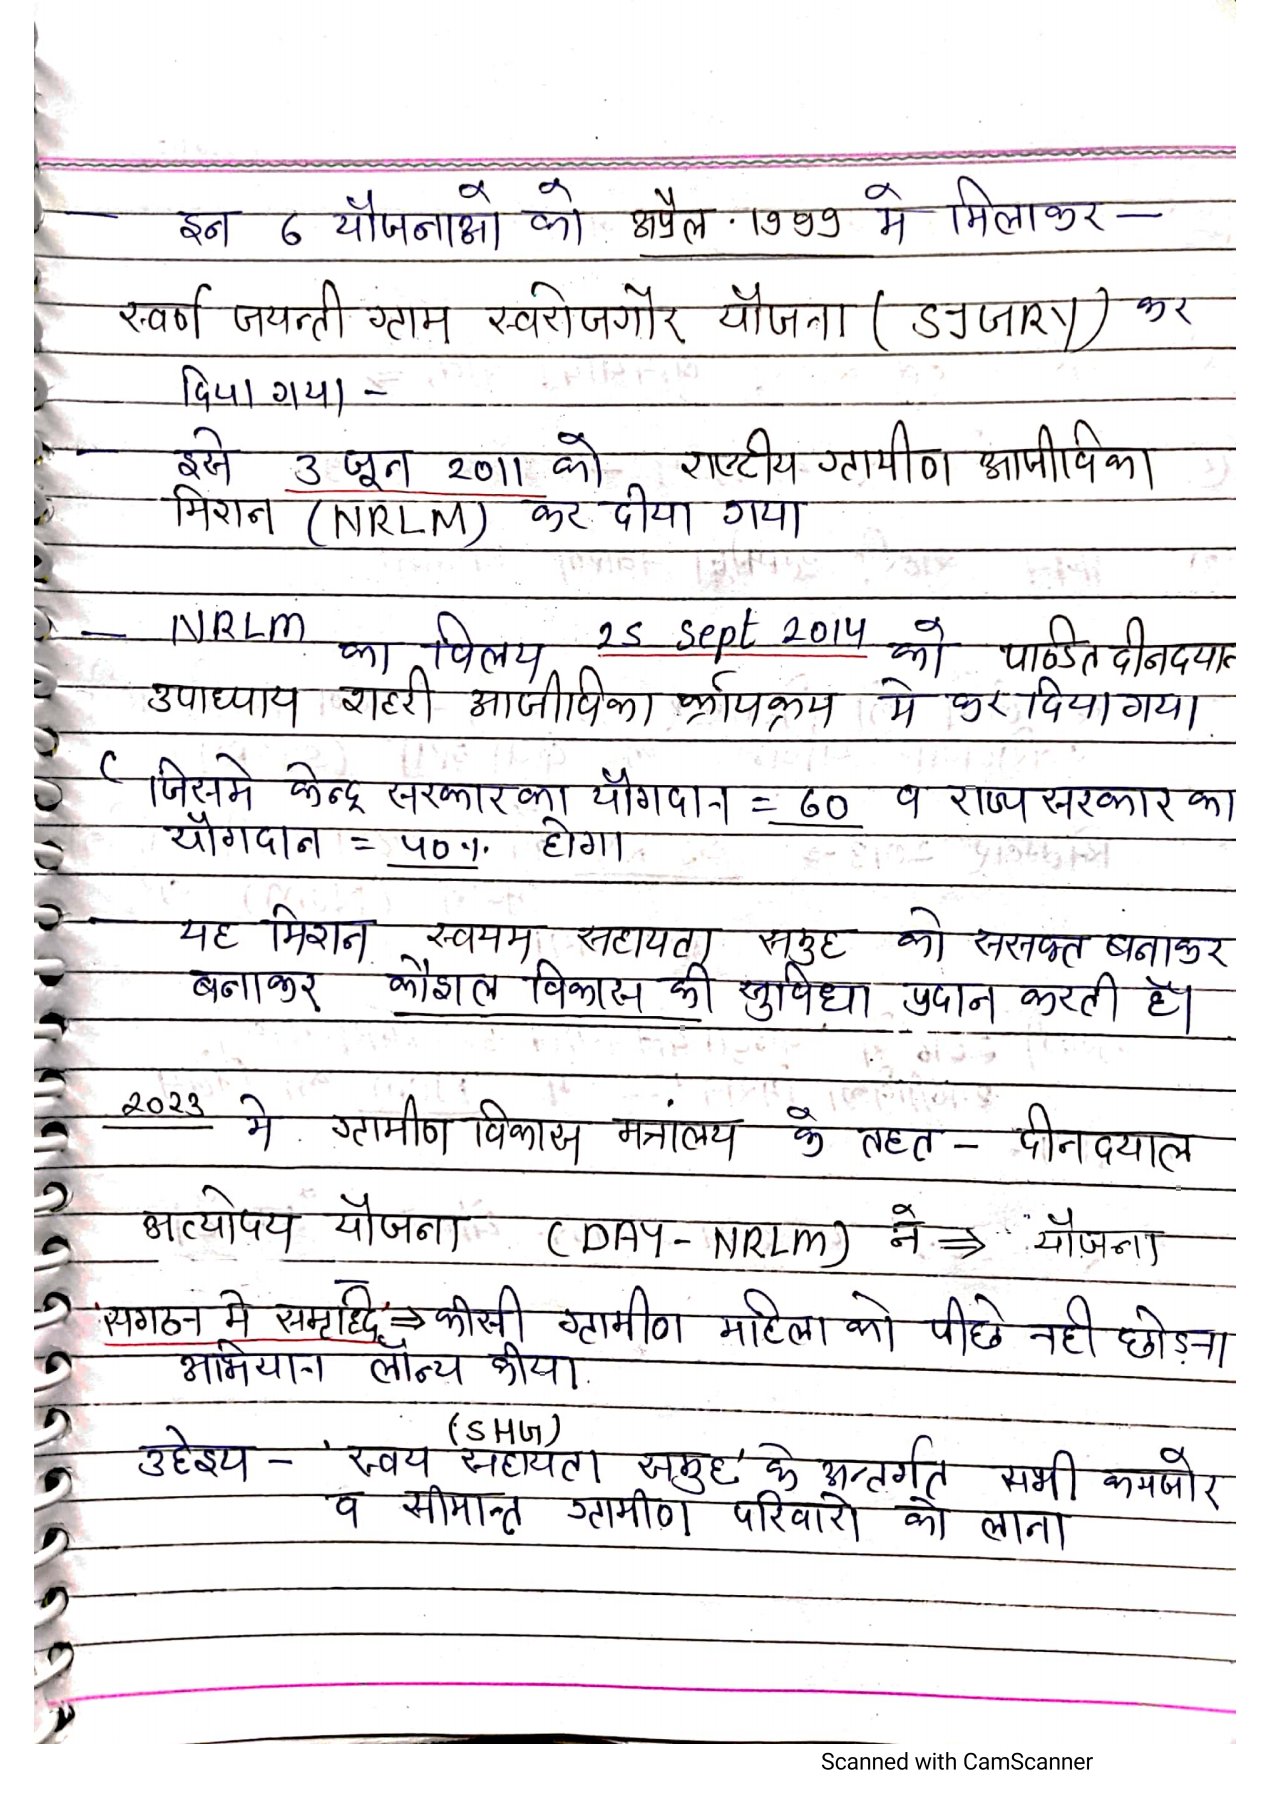 — इन 6 यौजनाओ को अप्रैल · 1999 मे मिलाकर —
स्वर्ण जयन्ती ग्राम स्वरोजगौर यौजना ( SJGRY) कर
दिया गया –
इसे 3 जून 2011 को राष्टीय ग्रामीण आजीविका
मिशन (NRLM) कर दीया गया
— NRLM का विलय 25 Sept 2014 को पाण्डित दीनदयाल
उपाध्याय शहरी आजीविका र्कायक्रम मे कर दिया गया
जिसमे केन्द्र सरकार का यौगदान = 60 व राज्य सरकार का
यौगदान = 40%. होगा
यह मिशन स्वयम सहायता समुह को ससक्त बनाकर
बनाकर कौशल विकास की सुविधा प्रदान करती है।
2023 मे ग्रामीण विकास मत्रांलय के तहत – दीनदयाल
अत्योदय यौजना (DAY-NRLM) ने ⇒ यौजना
'सगठन मे समृध्दि' ⇒ कीसी ग्रामीण महिला को पीछे नही छोड़ना
अभियान लॉन्च कीया.
(SHG)
उद्देश्य – 'स्वय सहायता समुह' के अन्तर्गत सभी कमजोर
व सीमान्त ग्रामीण परिवारो को लाना
Scanned with CamScanner